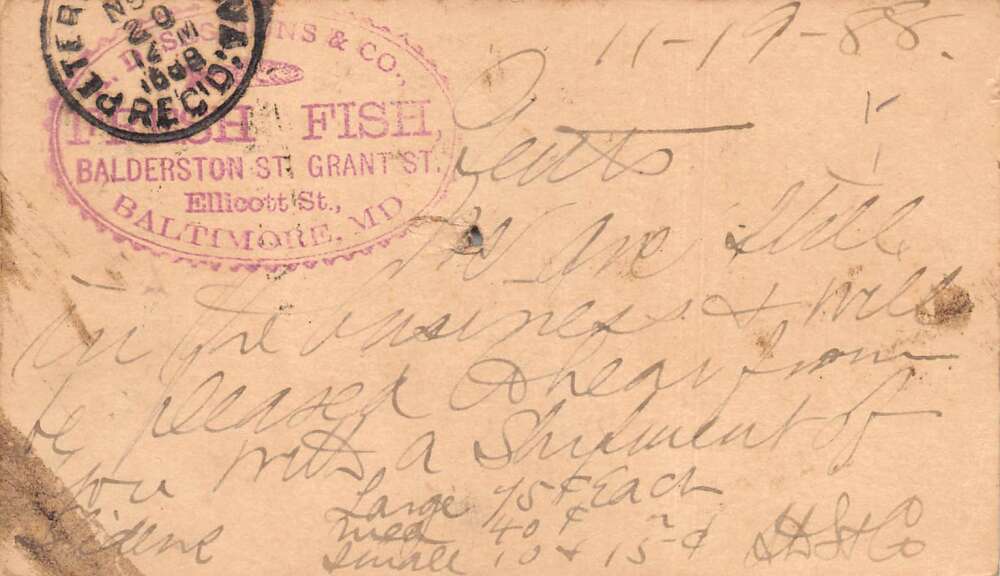 11-19-88.
PETER
NO
20
12 M
1888
REC'D.
VA
SONS & CO.,
FRESH FISH,
BALDERSTON ST. GRANT ST.
Ellicott St.,
BALTIMORE, MD
Gents
We are still
in the business & will
be pleased to hear from
you with a Shipment of
Large 75¢ Each
med 40¢
small 10 & 15¢
& Co